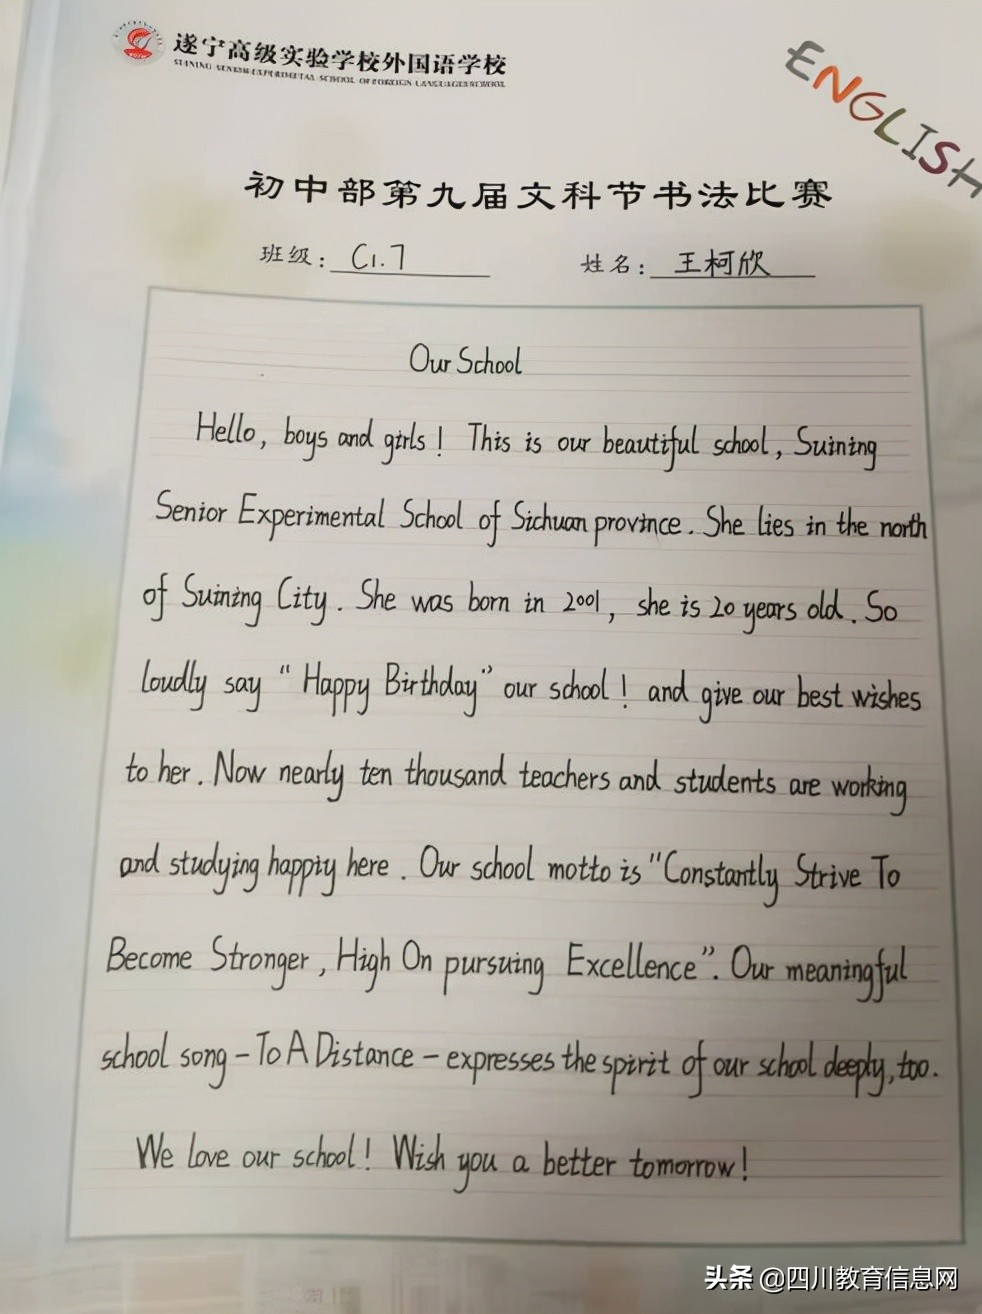 遂宁高级实验学校外国语学校
SUINING SENIOR EXPERIMENTAL SCHOOL OF FOREIGN LANGUAGES SCHOOL
ENGLISH
初中部第九届文科节书法比赛
班级: C1.7 姓名: 王柯欣
Our School
Hello, boys and girls! This is our beautiful school, Suining
Senior Experimental School of Sichuan province. She lies in the north
of Suining City. She was born in 2001, she is 20 years old. So
loudly say “Happy Birthday” our school! and give our best wishes
to her. Now nearly ten thousand teachers and students are working
and studying happiy here. Our school motto is "Constantly Strive To
Become Stronger, High On pursuing Excellence”. Our meaningful
school song - To A Distance - expresses the spirit of our school deeply, too.
We love our school! Wish you a better tomorrow!
头条 @四川教育信息网